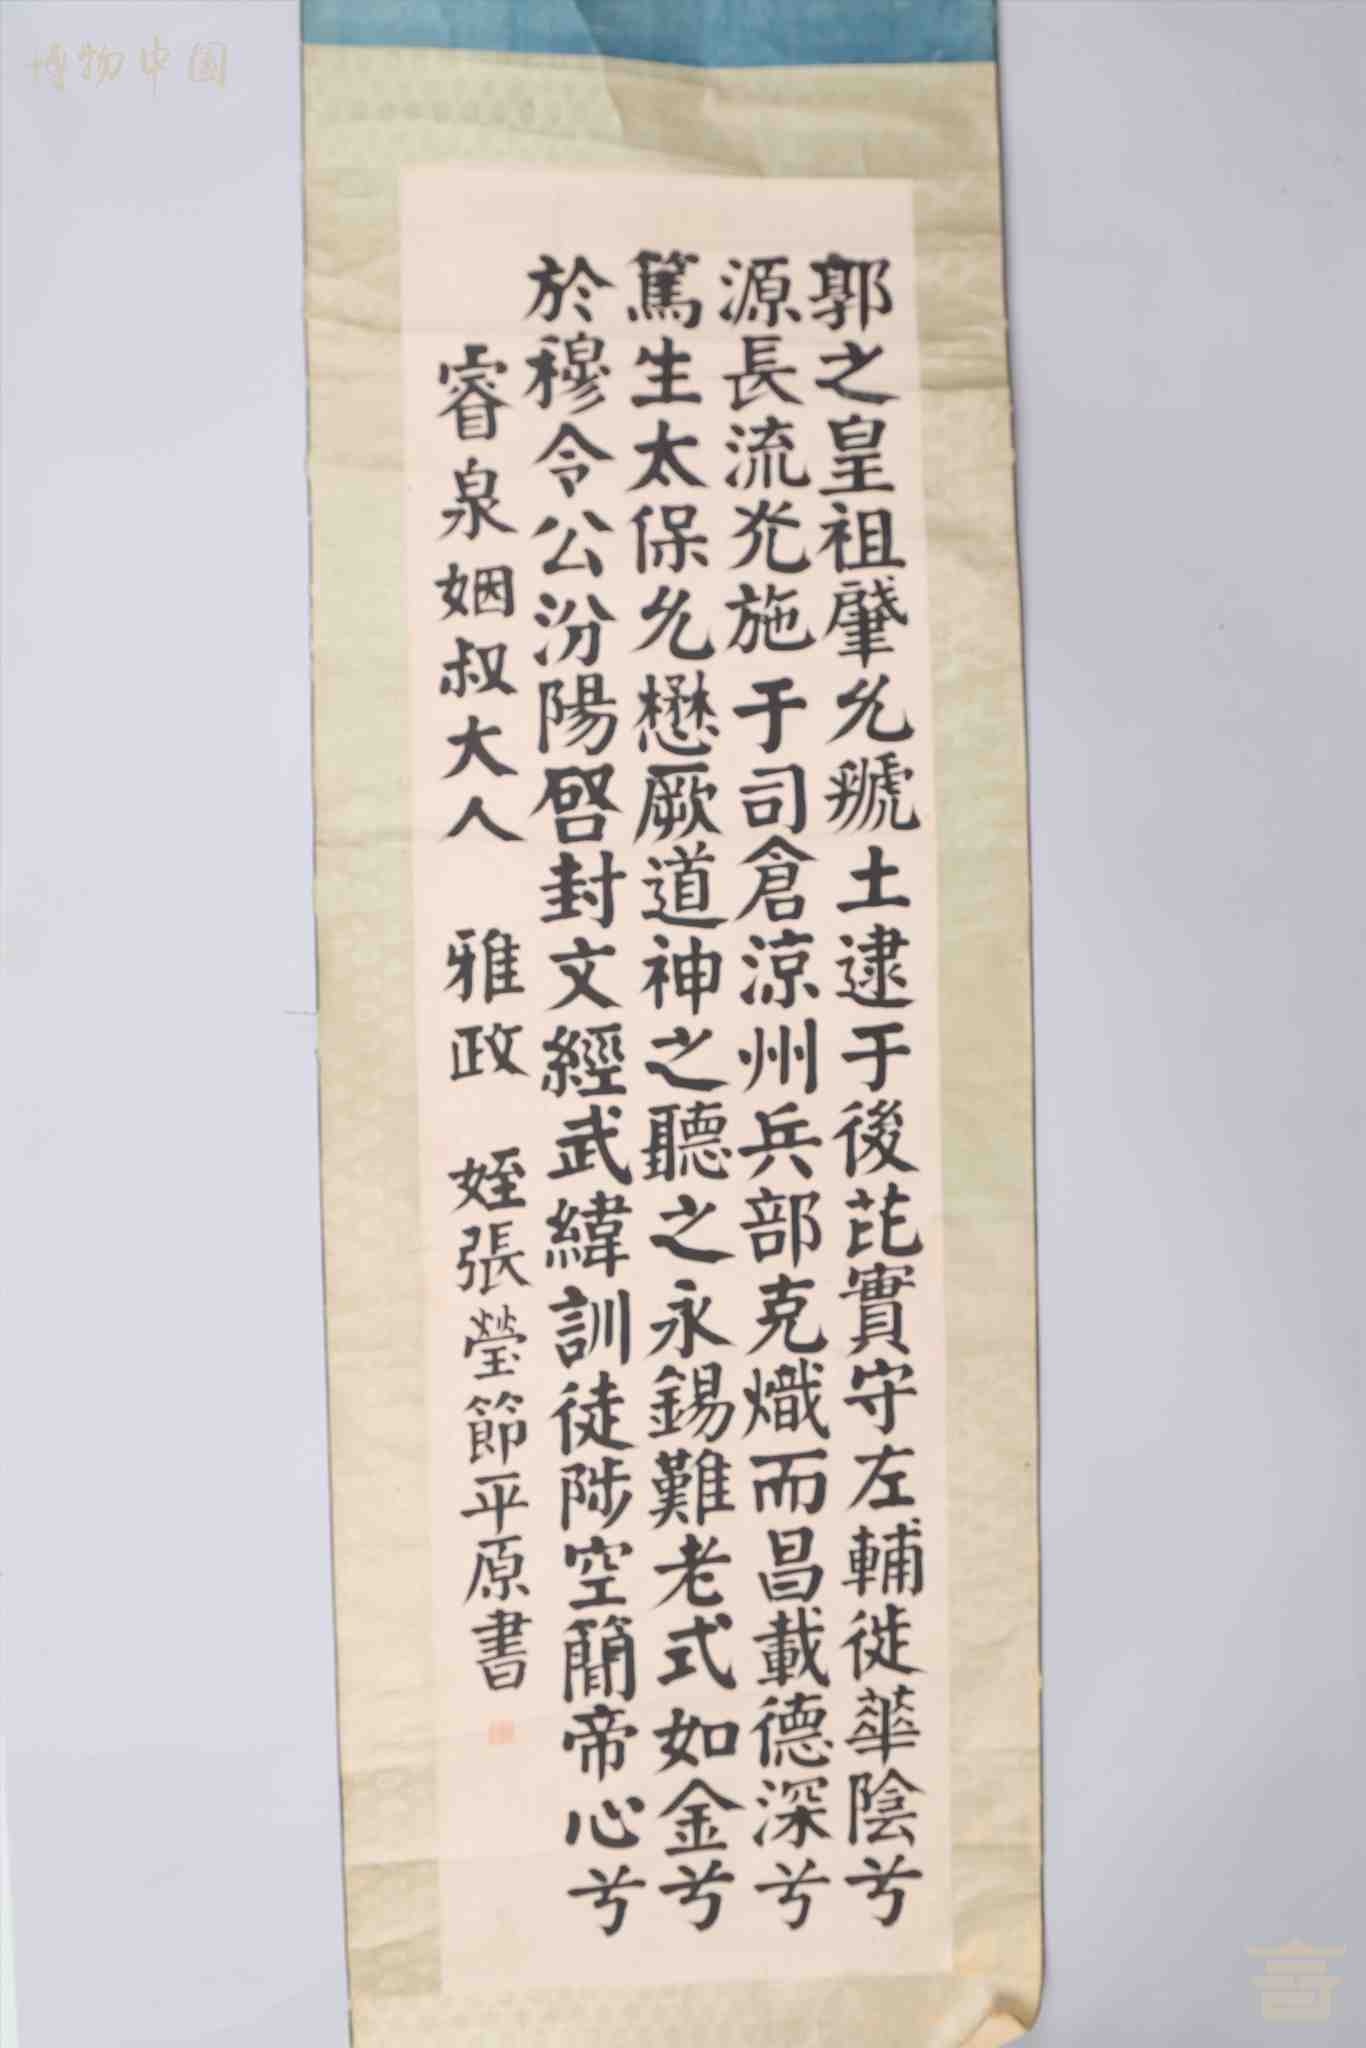 博物中国
郭之皇祖肇允虢土逮于後芘實守左輔徙華陰兮
源長流光施于司倉涼州兵部克熾而昌載德深兮
篤生太保允懋厥道神之聽之永錫難老式如金兮
於穆令公汾陽啓封文經武緯訓徒陟空簡帝心兮
睿泉姻叔大人 雅政 姪張瑩節平原書